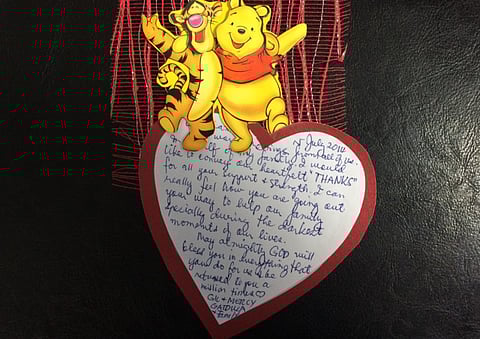 July 2014
of us.
like to convey our heartfelt "THANKS"
for all your support & strength. I can
really feel how you are going out
your way to help our family
specially during the darkest
moments of our lives.
May almighty GOD will
bless you in everything that
you do for us & be
returned to you a
million times ♡
GK & MERCY
GATDULA